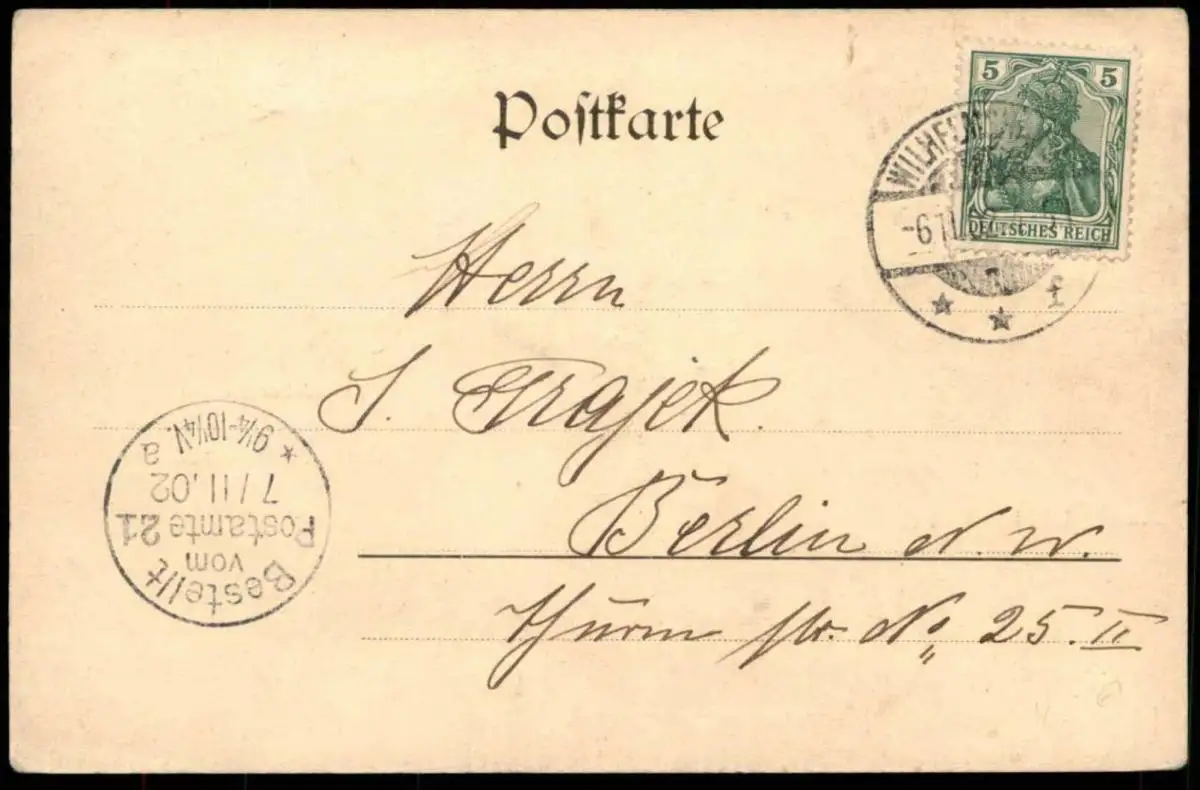 Postkarte
5 5
DEUTSCHES REICH
-6 11.02
Herrn
J. Trajek.
Berlin N. W.
Thurm str. No 25. II
Bestellt
vom
Postamte 21
7/11.02
9¼-10¼V.
a